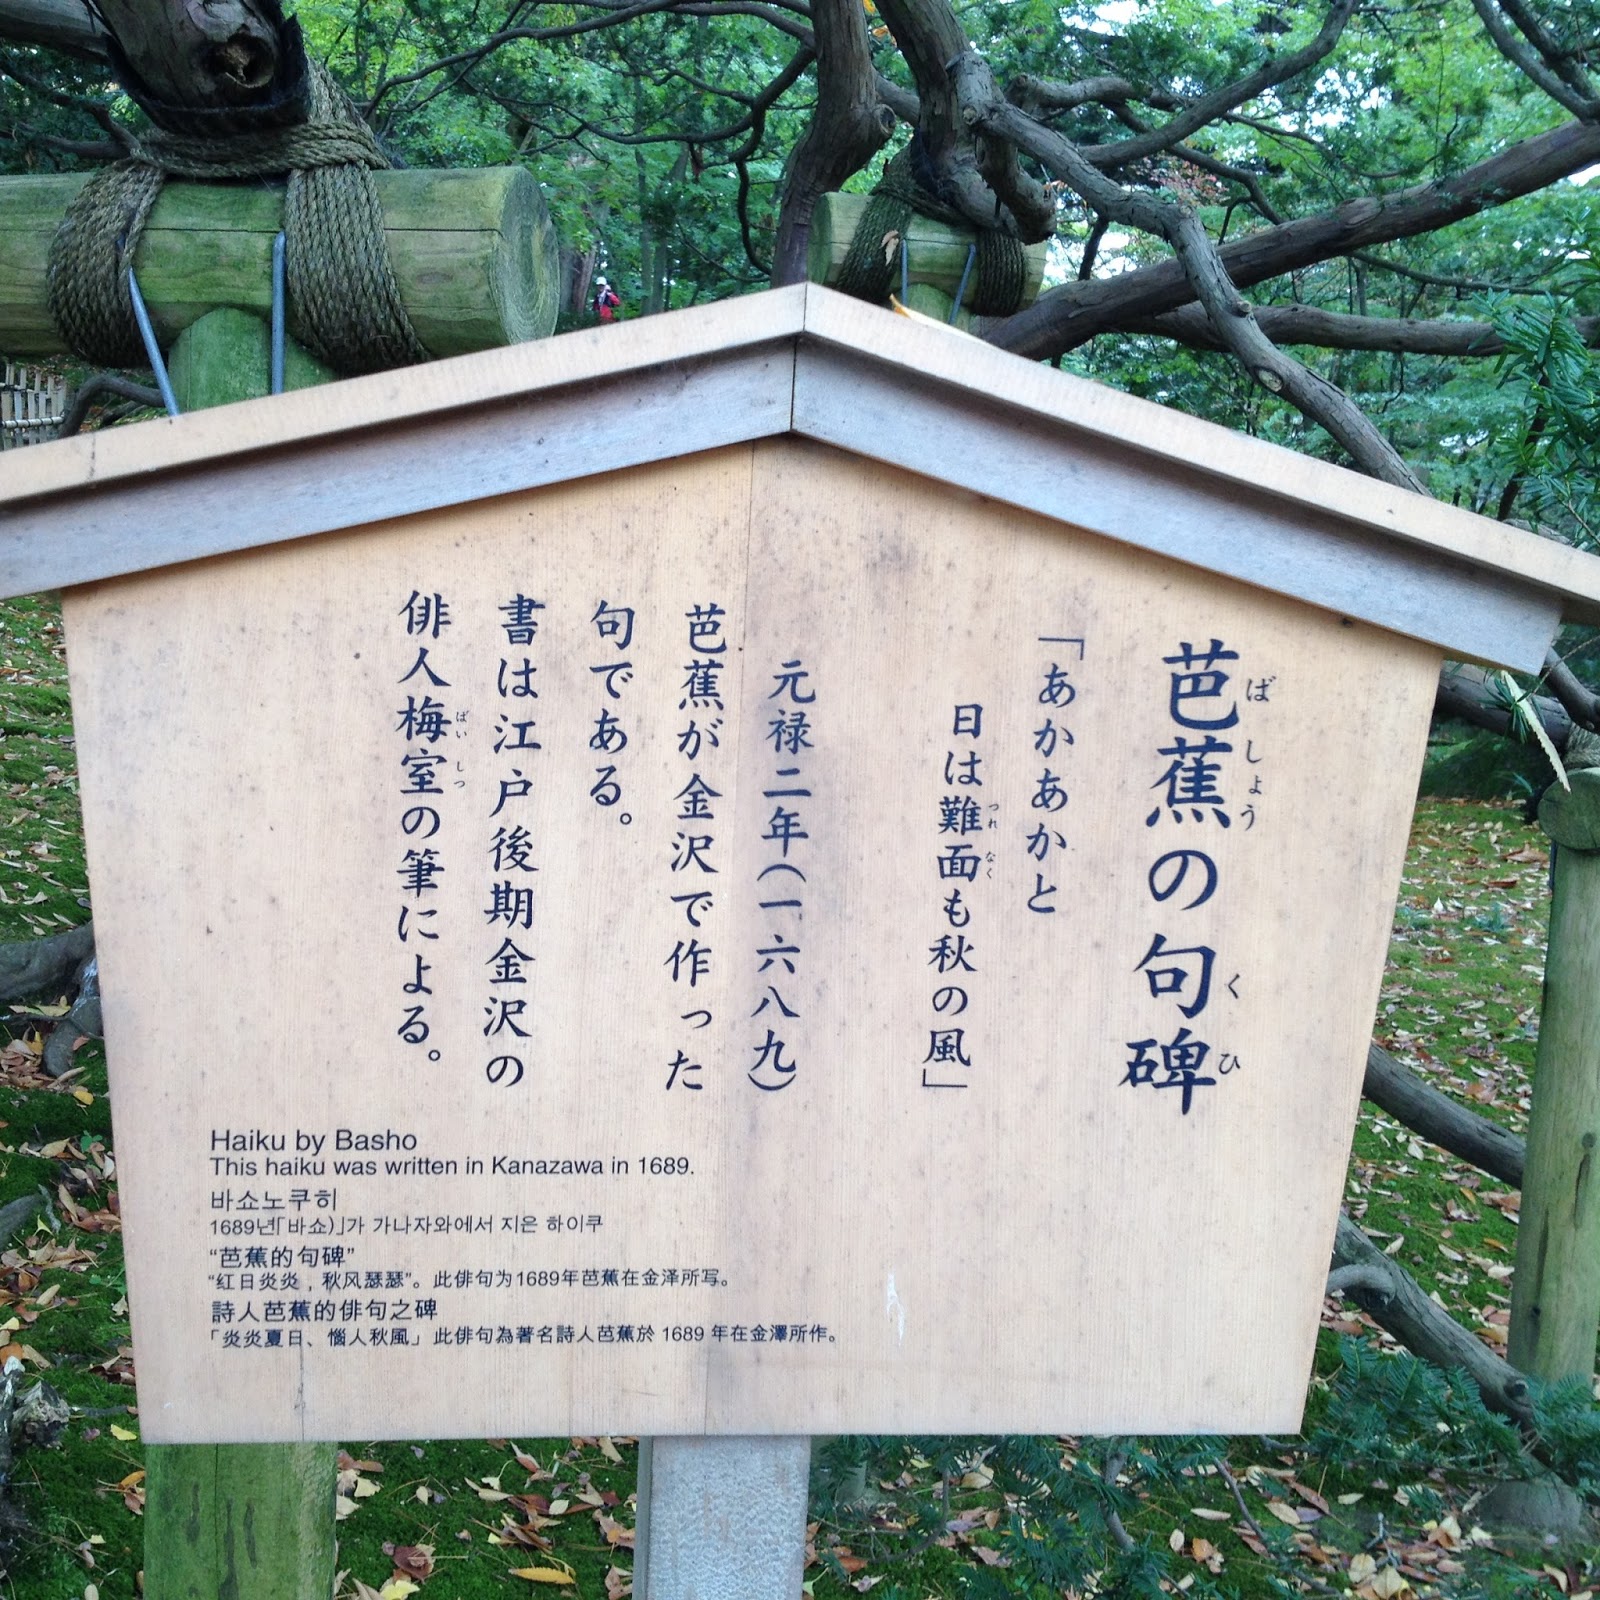 芭蕉の句碑
ばしょう くひ
「あかあかと
日は難面も秋の風」
つれなく
元禄二年(一六八九)
芭蕉が金沢で作った
句である。
書は江戸後期金沢の
俳人梅室の筆による。
ばいしつ
Haiku by Basho
This haiku was written in Kanazawa in 1689.
바쇼노쿠히
1689년「바쇼)」가 가나자와에서 지은 하이쿠
“芭蕉的句碑”
“红日炎炎，秋风瑟瑟”。此俳句为1689年芭蕉在金泽所写。
詩人芭蕉的俳句之碑
「炎炎夏日、惱人秋風」此俳句為著名詩人芭蕉於 1689 年在金澤所作。